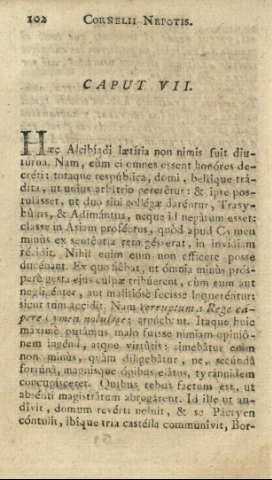 102 CORNELII NEPOTIS.
CAPUT VII.
Hæc Alcibiadi lætitia non nimis fuit diu-
turna. Nam, cùm ei omnes essent honóres de-
créti: totaque respública, domi, bellique trá-
dita, ut unius arbitrio gererétur: & ipse pos-
tulásset, ut duo sibi collégæ daréntur, Trasy-
búlus, & Adimántus, neque id negátum esset:
classe in Asiam proféctus, quòd apud Cymen
minùs ex senténtia rem gésserat, in invídiam
récidit. Nihil enim eum non efficere posse
ducébant. Ex quo fiébat, ut ómnia minùs prós-
perè gesta ejus culpæ tribúerent, cùm eum aut
negligénter, aut malitiósè fecisse loquerentur:
sicut tum áccidit. Nam corruptum à Rege cá-
pere Cymen noluisse: arguébant. Itaque huic
máximè putámus malo fuisse nímiam opinió-
nem ingénii, atque virtútis: timebátur enim
non minùs, quàm diligebátur, ne, secúnda
fortúna, magnisque ópibus elátus, tyránnidem
concupísceret. Quibus rebus factum est, ut
absénti magistrátum abrogárent. Id ille ut au-
dívit, domum revérti noluit, & se Páctyen
cóntulit, ibique tria castélla communívit, Bor-